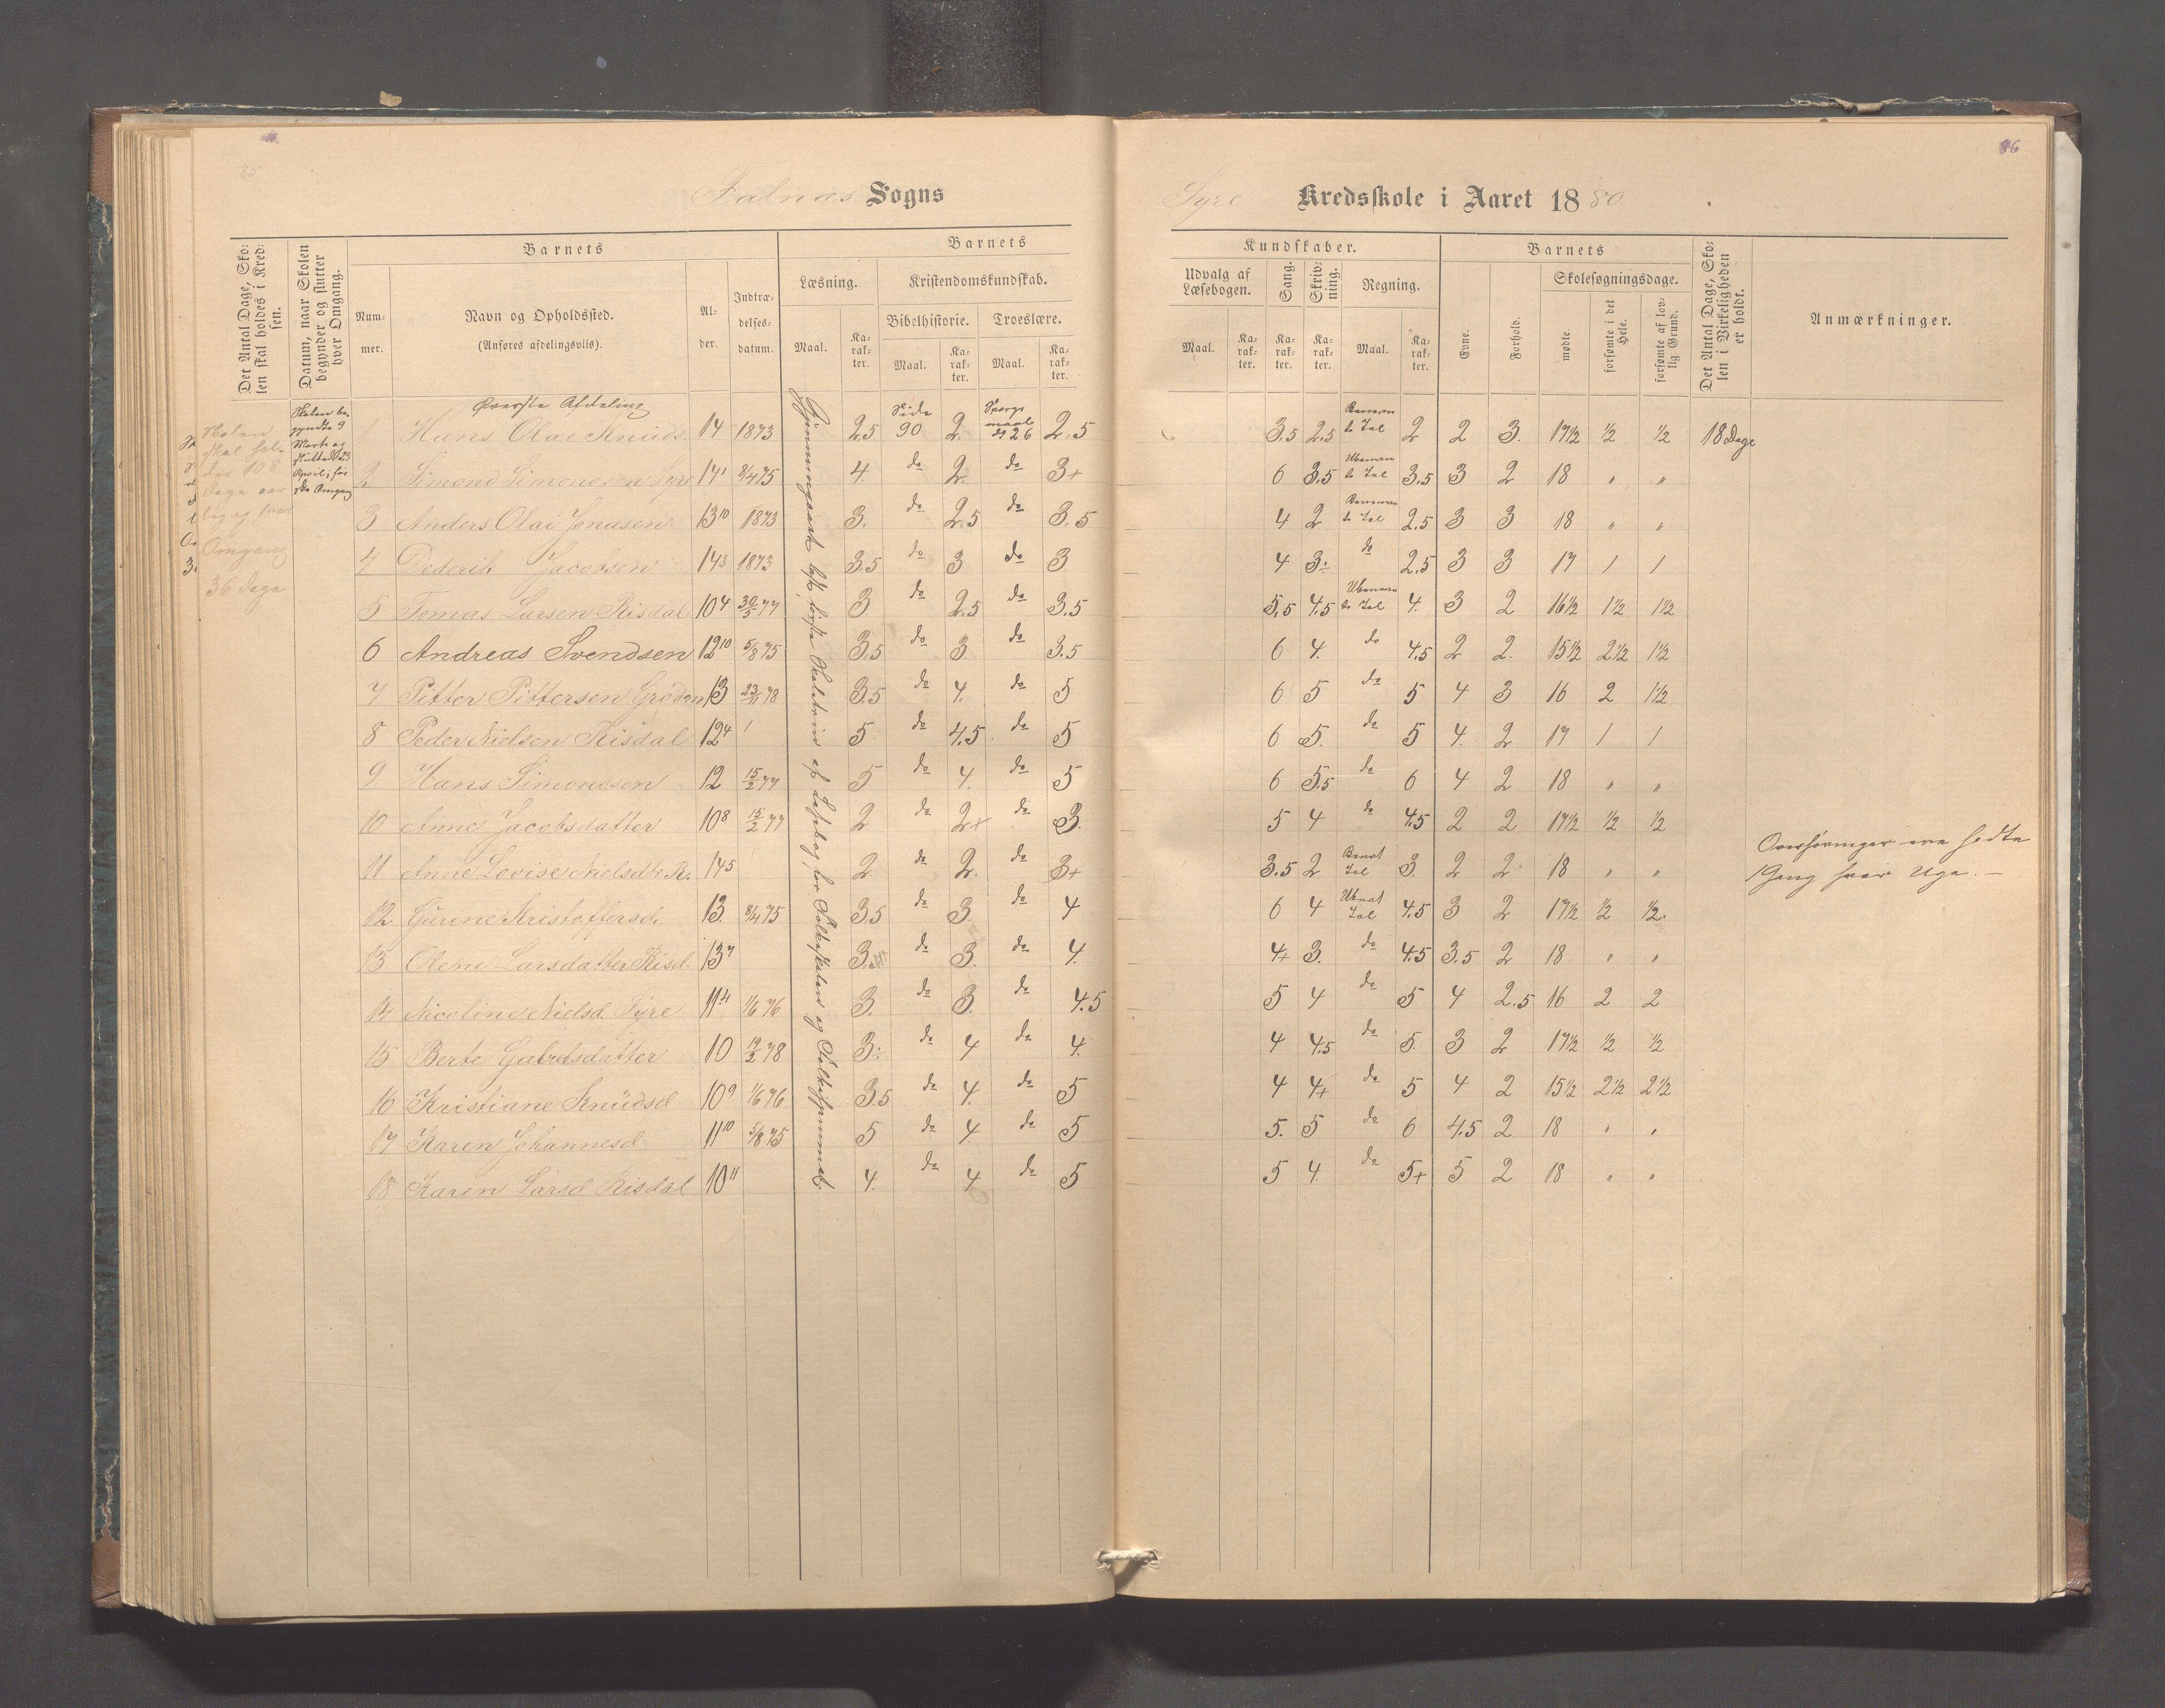 85
86
Falnæs Sogns
Syre Kredsskole i Aaret 1880
Det Antal Dage, Skolen skal holdes i Kredsen.
Datum, naar Skolen begynder og slutter hver Omgang.
Barnets
Nummer.
Navn og Opholdssted.
(Anføres afdelingsvis).
Alder.
Indtrædelsesdatum.
Barnets
Læsning.
Maal.
Karakter.
Kristendomskundskab.
Bibelhistorie.
Troeslære.
Maal.
Karakter.
Maal.
Karakter.
Kundskaber.
Udvalg af Læsebogen.
Maal.
Karakter.
Sang.
Karakter.
Skrivning.
Karakter.
Regning.
Maal.
Karakter.
Barnets
Evne.
Forhold.
Skolesøgningsdage.
mødte.
forsømte i det Hele.
forsømte af lovlig Grund.
Det Antal Dage, Skolen i Virkeligheden er holdt.
Anmærkninger.
Skolen
skal hol-
des 108
Dage aar
lig og hver
Omgang
36 Dage
Skolen be-
gyndte 9
Marts og
sluttede 23
April i før
ste Omgang
Øverste Afdeling
1 Hans Olai Knuds. 14 1873 2,5 Side 90 2 Spørgsmaal 26 2,5 3,5 2,5 Tal 2 2 3. 17½ ½ ½ 18 Dage
2 Simond Simonsen Syre 14¹ 8/4 75 4. do 2. do 3+ 6 3,5 Tal 3,5 3 2 18 " "
3 Anders Olai Jonasen 13¹⁰ 1873 3. do 2,5 do 3,5 4 2 Tal 2,5 3 3 18 " "
4 Dederik Jacobsen 14³ 1873 3,5 do 3 do 3 4 3÷ do 2,5 3 3 17 1 1
5 Tomas Larsen Risdal 10⁴ 30/5 77 3 do 2,5 do 3,5 5,5 4,5 Tal 4. 3 2 16½ 1½ 1½
6 Andreas Svendsen 12¹⁰ 5/8 75 3,5 do 3 do 3.5 6 4. do 4,5 2 2. 15½ 2½ 1½
7 Pitter Pittersen 13 23/11 78 3,5 do 4. do 5 6 5 do 5 4 3 16 2 1½
8 Peder Nielsen Risdal 12⁴ 5 do 4,5 do 5 6 5. do 5 4. 2 17 1 1
9 Hans Simonssen 12 15/2 77 5 do 4. do 5 6 5,5 do 6 4 2 18 " "
10 Anne Jacobsdatter 10⁸ 15/2 77 2 do 2+ do 3. 5 4 do 4,5 2 2 17½ ½ ½
11 Anne Lovise Nielsdtr R. 14⁵ 2 do 2. do 3+ 3.5 2 Tal 3. 2 2 18 " "
12 Gurine Kristoffersd. 13. 8/4 75 3,5 do 3. do 4 6 4 Tal 4,5 3 2 17½ ½ ½.
13 Olene Larsdatter Risd. 13⁷ 3. do 3. do 4. 4+ 3. do 4,5 3.5 2 18 " "
14 Nicoline Nielsd. Syre 11⁴ 1/6 76 3. do 3. do 4.5 5 4 do 5 4 2.5 16 2 2
15 Berte Gabrielsdatter 10 19/2 78 3÷ do 4 do 4. 4 4,5 do 5. 3 2 17½ ½ ½
16 Kristiane Knudsd 10⁹ 1/6 76 3.5 do 4. do 5 4 4+ do 5 4 2 15½ 2½ 2½
17 Karen Johannesd 11¹⁰ 5/8 75 5 do 4 do 5 5. 5 do 6 4.5 2 18 " "
18 Karen Larsd Risdal 10¹¹ 4. do 4 do 5 5 4. do 5+ 5 2 18 " "
Gang hver Uge.